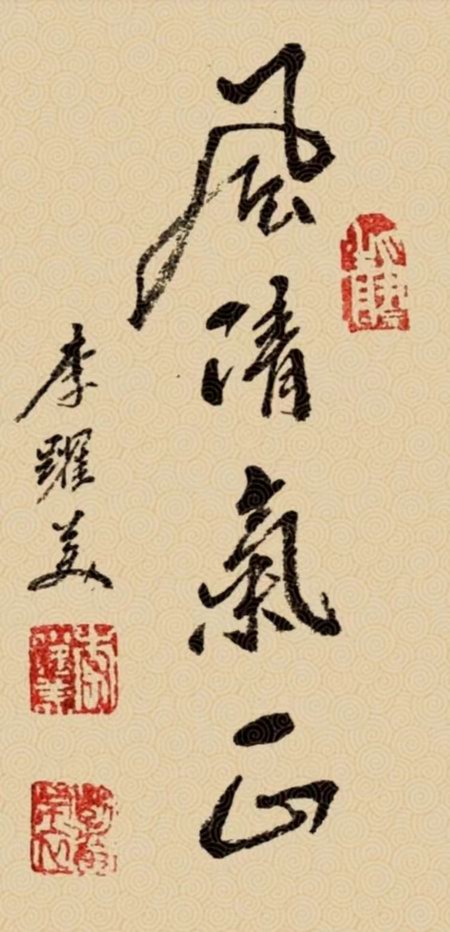 風清氣正
李躍美